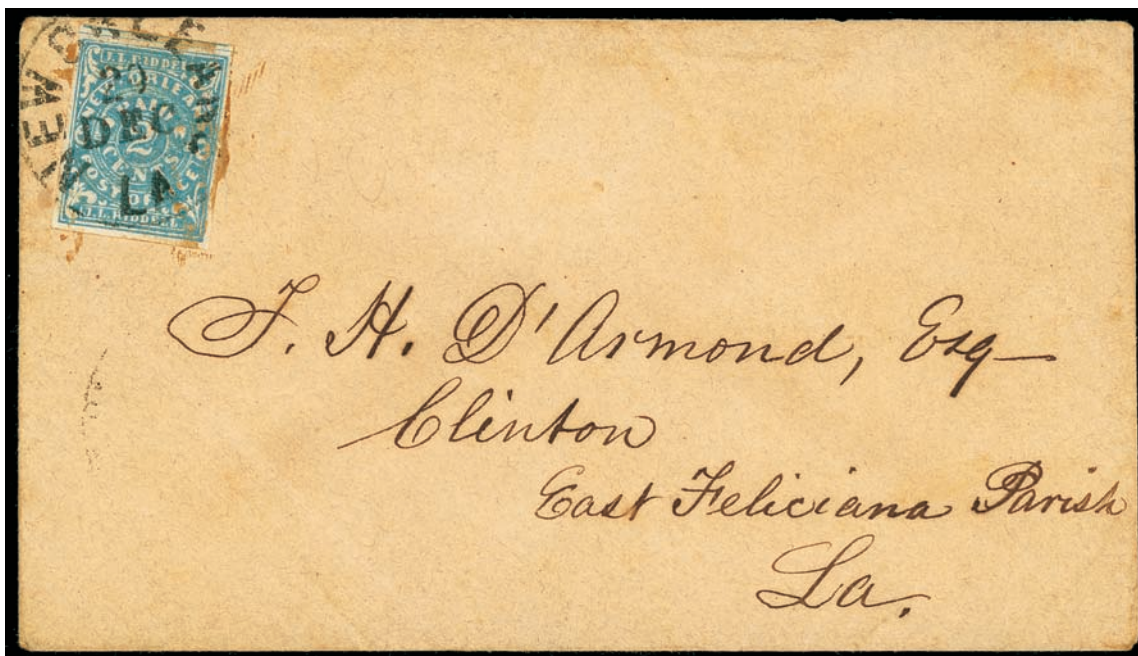 NEW ORLEANS
29
DEC
LA
J.L. RIDDELL
NEW ORLEANS
PAID
2
CENTS
POST OFFICE
J.L. RIDDELL
J. H. D'Armond, Esq
Clinton
East Feliciana Parish
La.